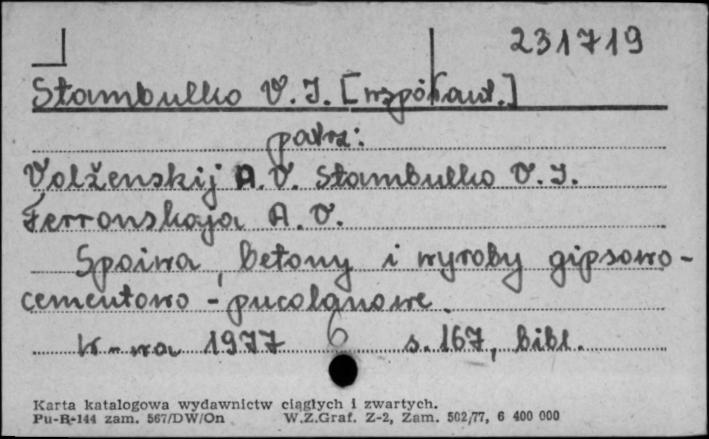 231719
Stambulko V. I. [współaut.]
patrz:
Volženskij A. V. Stambulko V. I.
Ferronskaja A. V.
Spoiwa, betony i wyroby gipsowo-
cementowo - pucolanowe.
W-wa 1977 s. 167, bibl.
Karta katalogowa wydawnictw ciągłych i zwartych.
Pu-B-144 zam. 567/DW/On W.Z.Graf. Z-2, Zam. 502/77, 6 400 000